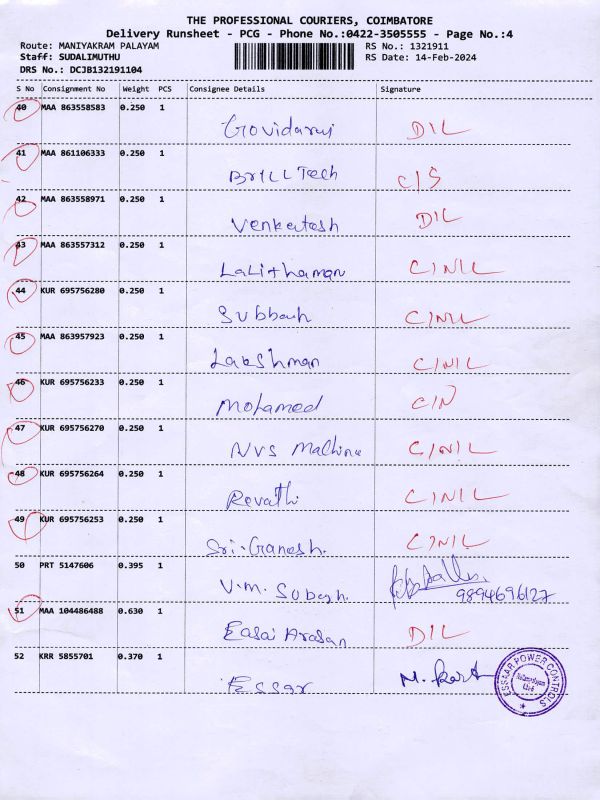 THE PROFESSIONAL COURIERS, COIMBATORE
Delivery Runsheet - PCG - Phone No.:0422-3505555 - Page No.:4
Route: MANIYAKRAM PALAYAM RS No.: 1321911
Staff: SUDALIMUTHU RS Date: 14-Feb-2024
DRS No.: DCJB132191104
S No Consignment No Weight PCS Consignee Details Signature
40 MAA 863558583 0.250 1
Govidaraj DIL
41 MAA 861106333 0.250 1
BrILL Tech C/S
42 MAA 863558971 0.250 1
Venkatesh DIL
43 MAA 863557312 0.250 1
Lalithaman C/NIL
44 KUR 695756280 0.250 1
Subbash C/NIL
45 MAA 863957923 0.250 1
Lakshman C/NIL
46 KUR 695756233 0.250 1
Mohamed C/N
47 KUR 695756270 0.250 1
NVS Machine C/NIL
48 KUR 695756264 0.250 1
Revathi C/NIL
49 KUR 695756253 0.250 1
Sri-Ganesh. C/NIL
50 PRT 5147606 0.395 1
V.M. Subash. 9894696127
51 MAA 104486488 0.630 1
Easai Arasan DIL
52 KRR 5855701 0.370 1
Essar M.
ESSAAR POWER CONTROLS